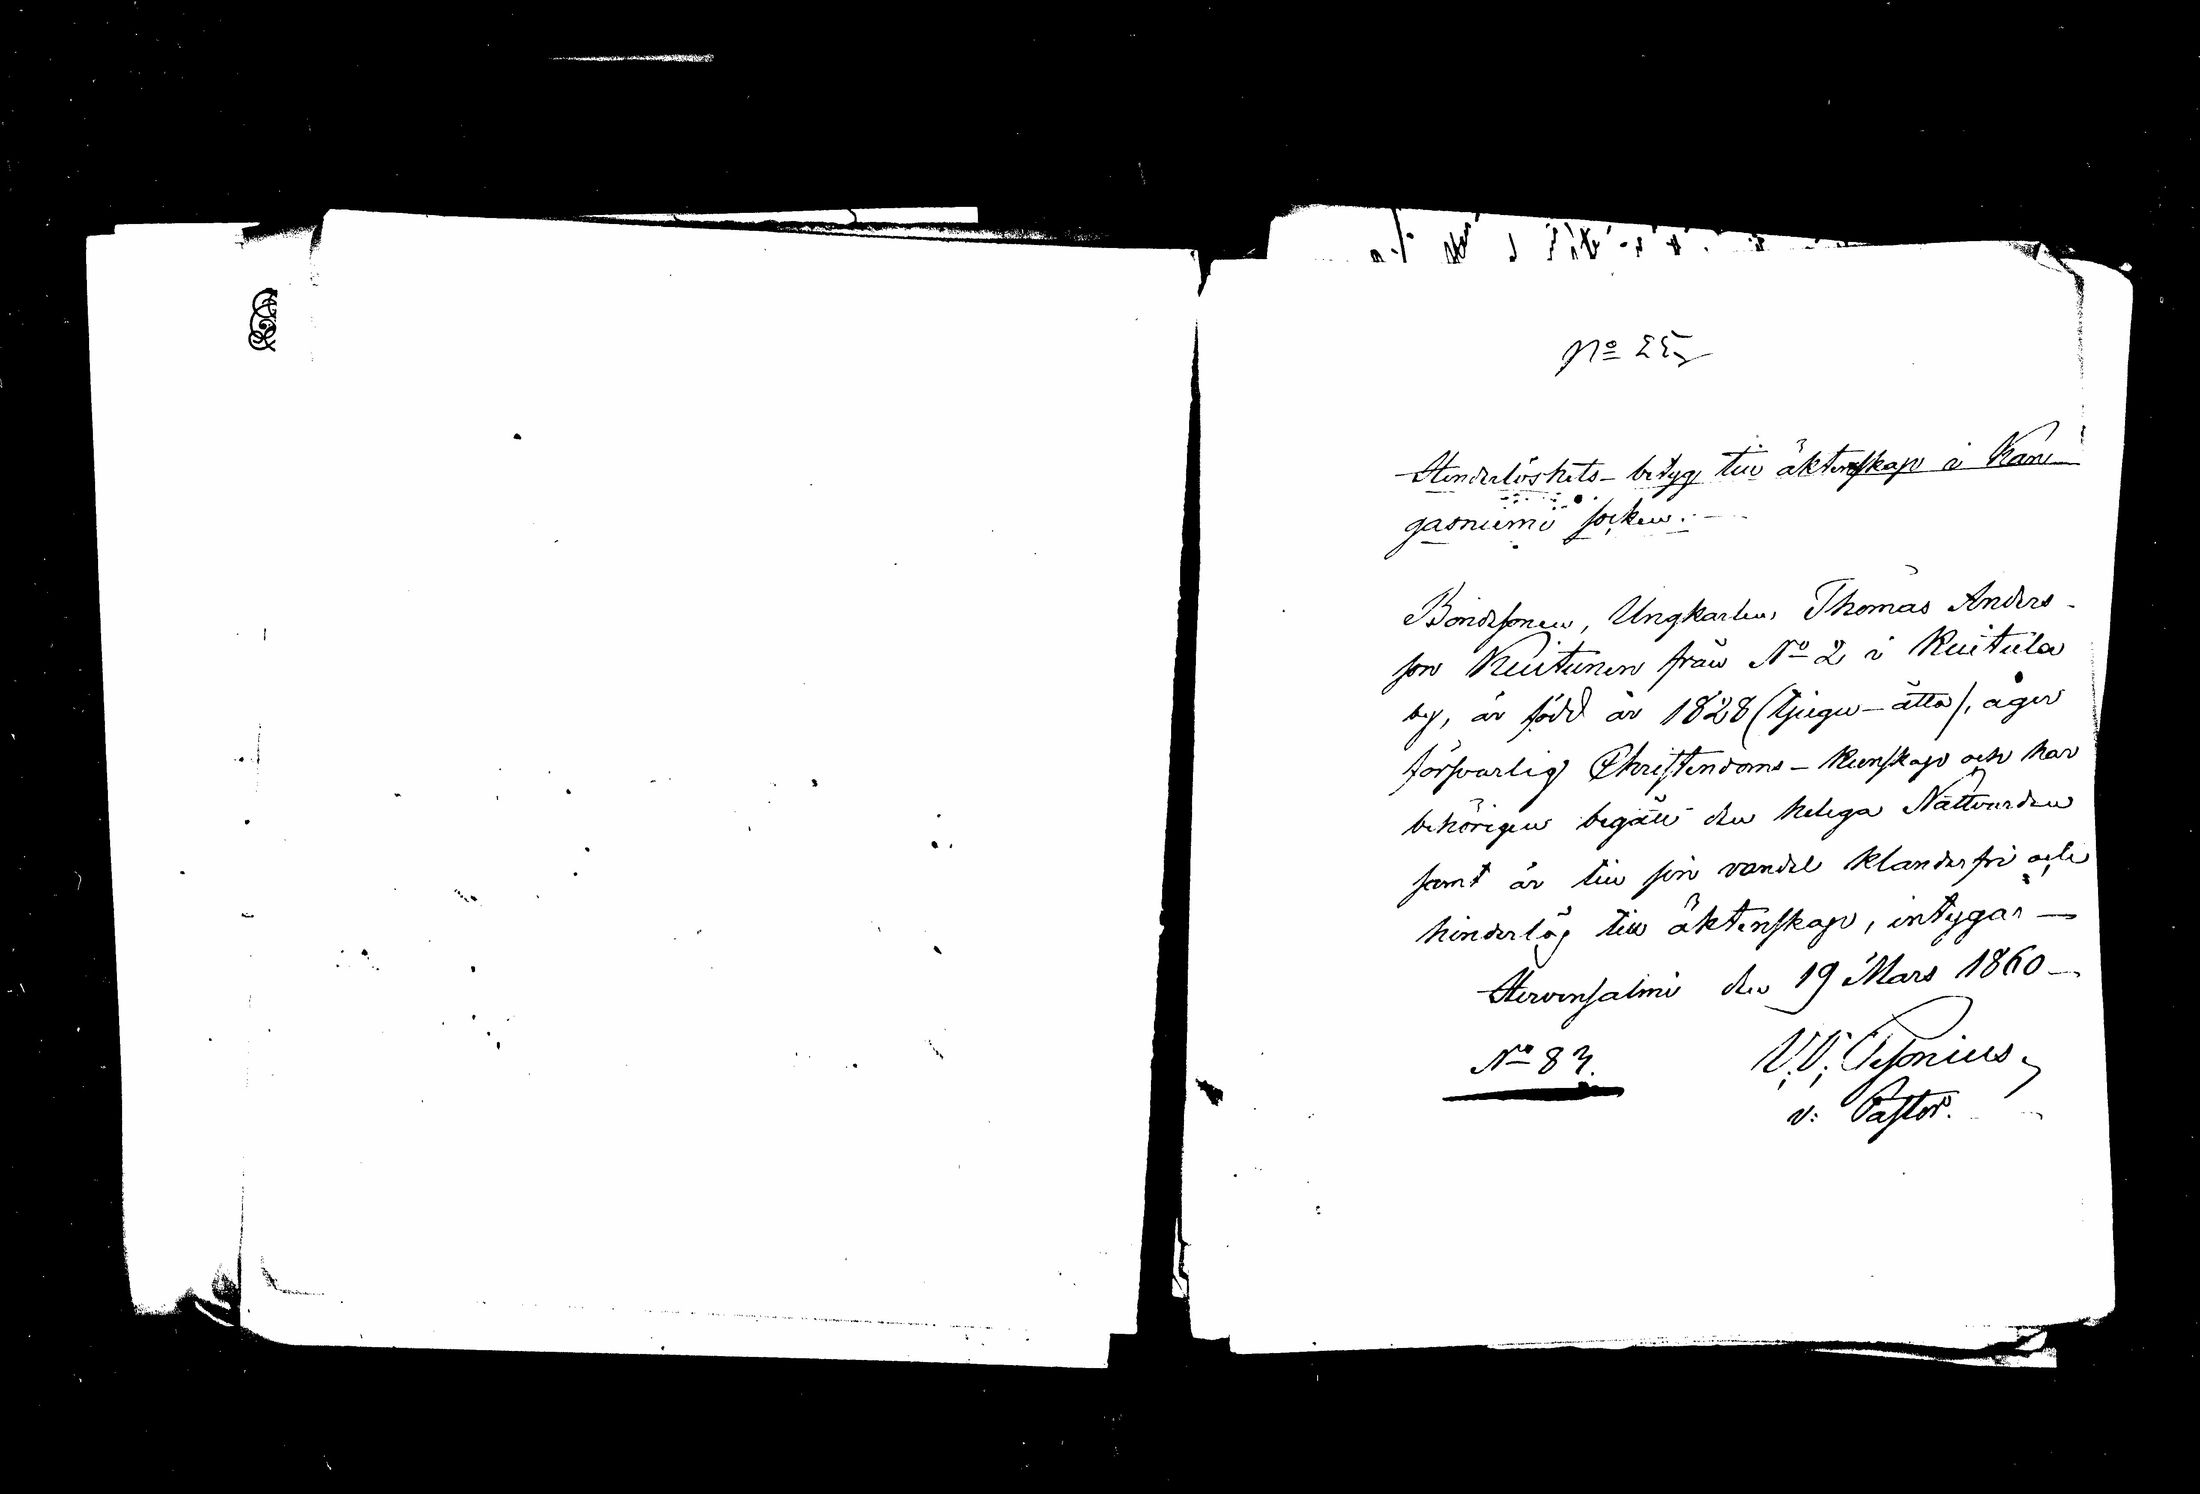 No 25
Hinderlöshets-betyg till äktenskap i Kan-
gasniemi socken.
Bondesonen, Ungkarlen Thomas Anders-
son Kuitunen från No 2 i Kuitula
by, är född år 1828 (tjugu-åtta), äger
försvarlig Christendoms-kunskap och har
behörigen begått den heliga Nattvarden
samt är till sin vandel klanderfri och
hinderlös till äktenskap, intygar —
Hirvensalmi den 19 Mars 1860 —
No 83. V. V.
v: Pastor.